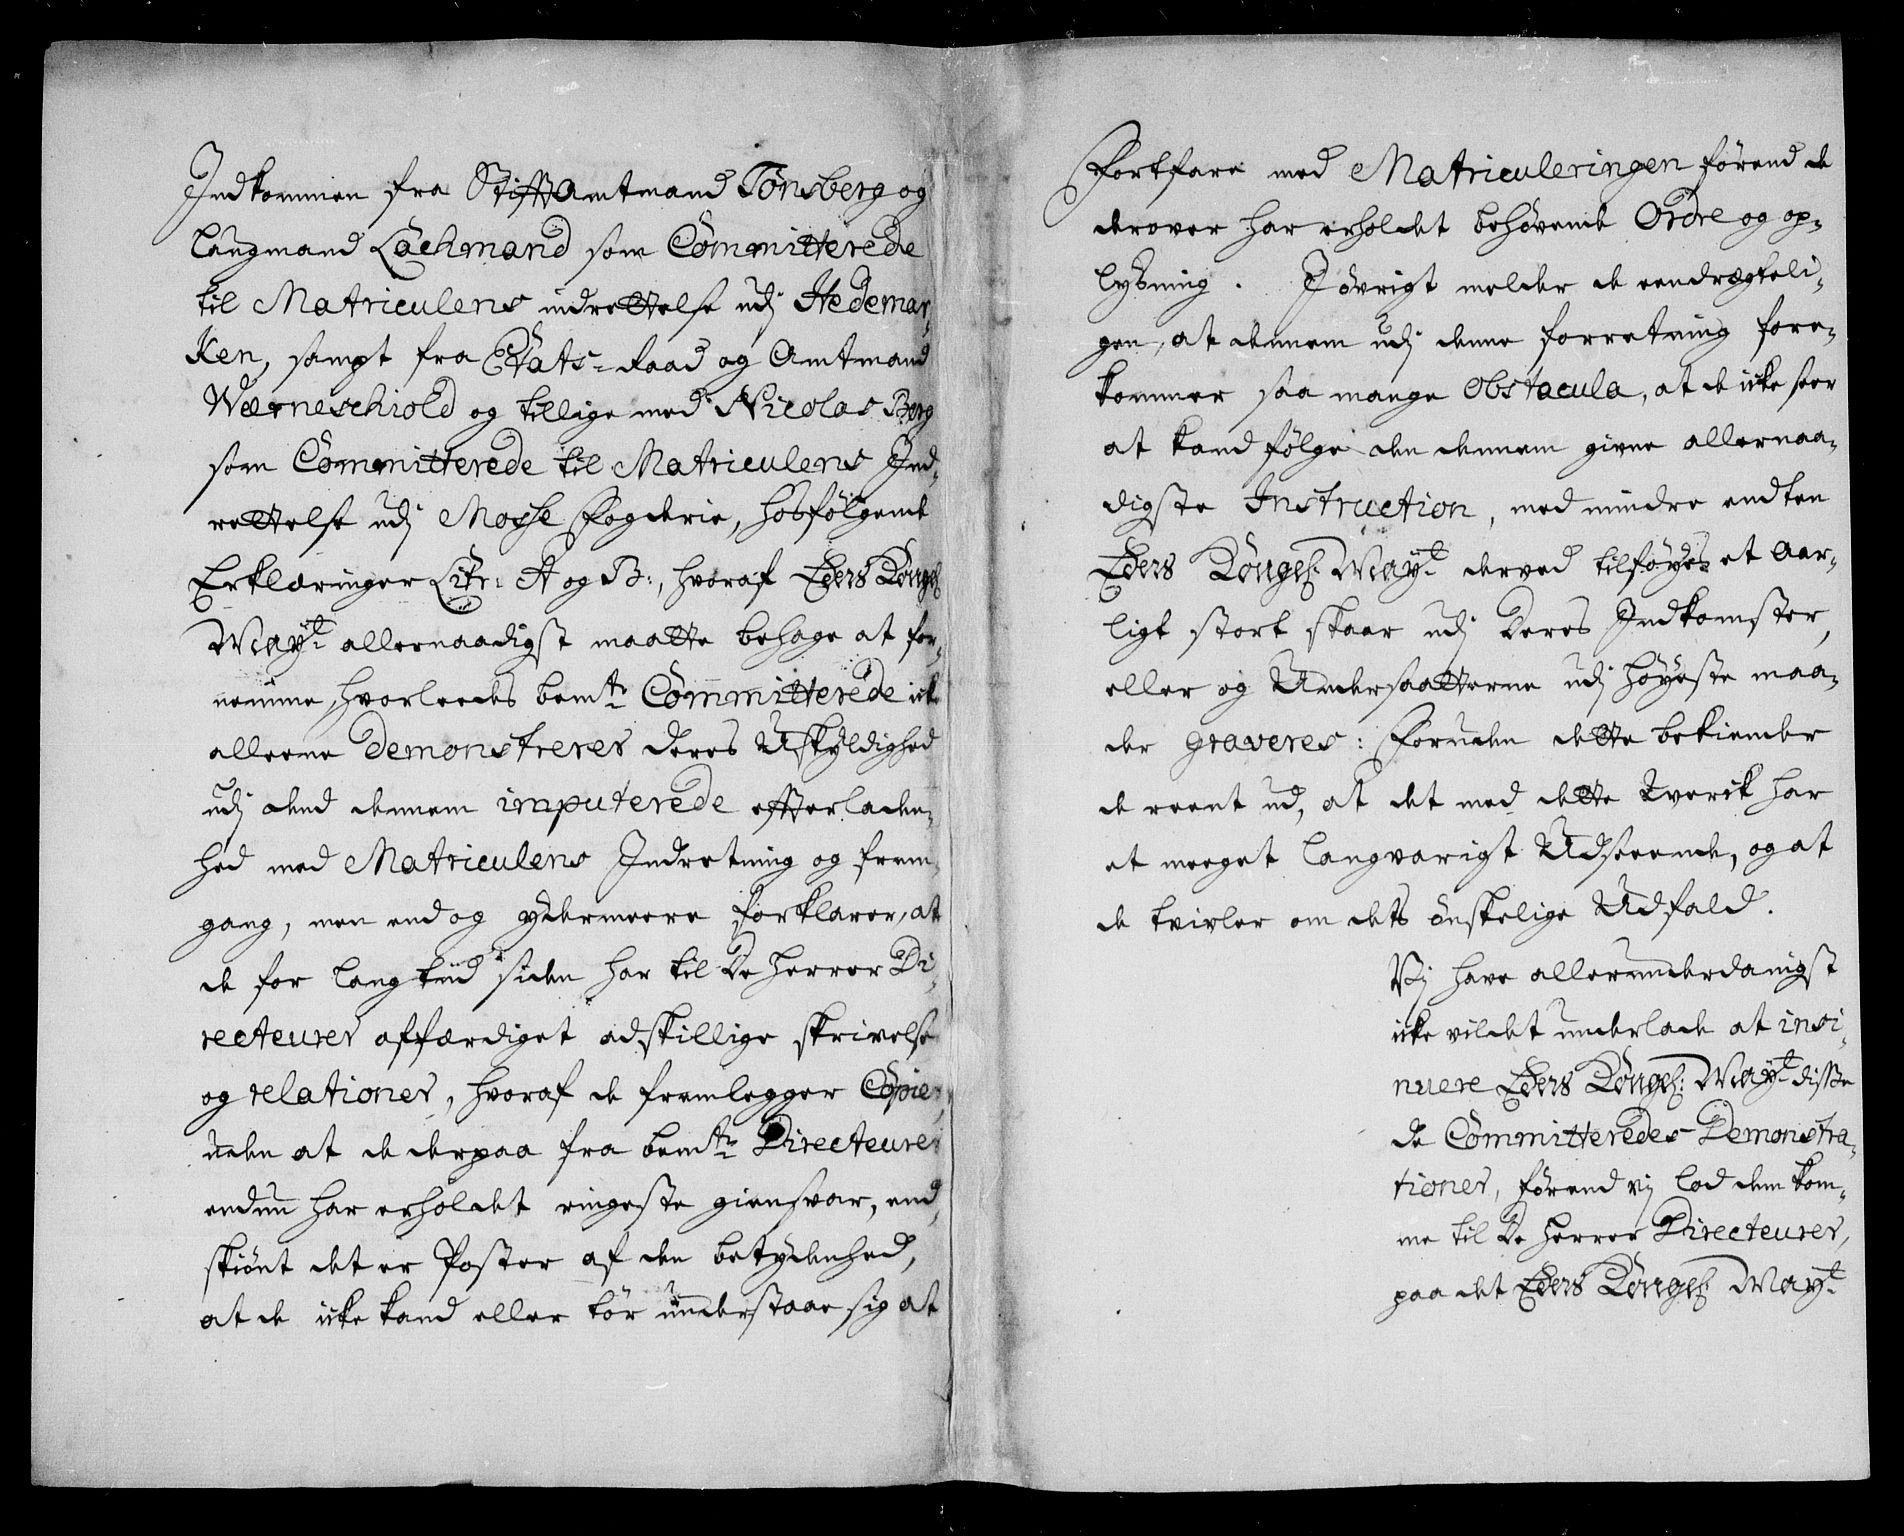 Indkommen fra Stifftamtmand Tönsberg og
Laugmand Lachmand som Committerede
til Matriculens indrettelse udj Hedemar-
ken, sampt fra Etats-Raad og Amtmand
Wærneschiold og tillige med Nicolas Berg
som Committerede til Matriculens Ind-
rettelse udj Mosse Fogderie, hosfölgende
Erklæringer Litr: A og B:, hvoraf Eders Kongel:
Mayt allernaadigst maatte behage at for-
nemme, hvorleedes bemte Committerede icke
alleene demonstrerer deres Uskyldighed
udj dend dennem imputerede effterladen-
hed med Matriculens Indretning og frem-
gang, men end og ydermeere forklarer, at
de for lang tiid siden har til De Herrer Di-
recteurer affærdiget adskillige skrivelse
og relationer, hvoraf de fremlegger Copier
uden at de derpaa fra bemte Directeurer
endnu har erholdet ringeste giensvar, end-
skiönt det er Poster af den betydenhed,
at de icke kand eller tör understaae sig at
Fortfare med Matriculeringen förend de
derover har erholdet behövende Ordre og op-
lysning. I övrigt melder de eendrægteli-
gen, at dennem udj denne forretning fore-
kommer saa mange Obstacula, at de icke seer
at kand fölge den dennem givne allernaa-
digste Instruction, med mindre endten
Eders Kongel: Mayt derved tilföyes et Aar-
ligt stort skaar udj Deres Indkomster,
eller og Undersaatterne udj höyeste maa-
der graveres: Foruden dette bekiender
de reent ud, at det med dette Verck har
et meeget langvarigt Udseende, og at
de tvivler om dets önskelige Udfald.
Vj have allerunderdanigst
icke vildet underlade at insi-
nuere Eders Kongel: Mayt disse
de Committeredes Demonstra-
tioner, förend vj lod dem kom-
me til De Herrer Directeurer,
paa det Eders Kongel: Mayt